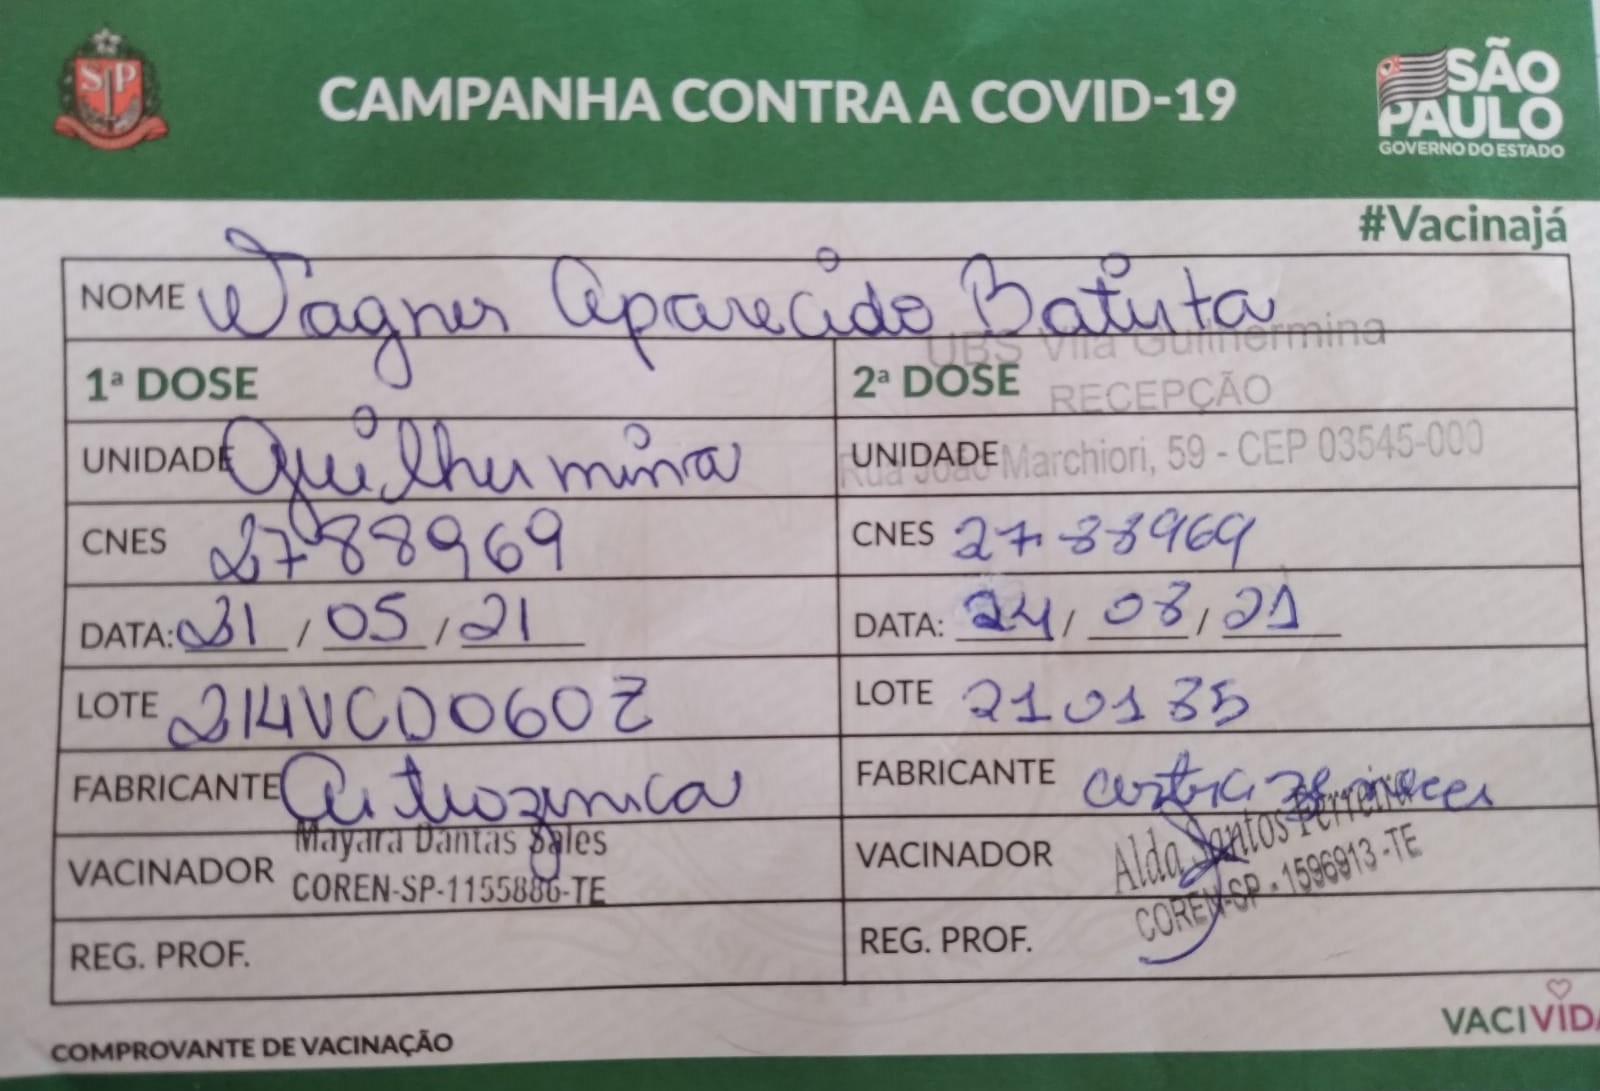 SP
CAMPANHA CONTRA A COVID-19
SÃO
PAULO
GOVERNO DO ESTADO
#Vacinajá
NOME Wagner Aparecido Batista
UBS Vila Guilhermina
1ª DOSE 2ª DOSE RECEPÇÃO
UNIDADE Guilhermina UNIDADE Rua João Marchiori, 59 - CEP 03545-000
CNES 2788969 CNES 2788969
DATA: 31 / 05 / 21 DATA: 24 / 08 / 21
LOTE 214VCD060Z LOTE 210135
FABRICANTE FABRICANTE
VACINADOR Mayara Dantas Sales VACINADOR Alda Santos Ferreira
COREN-SP-1155886-TE COREN-SP - 1596913 -TE
REG. PROF. REG. PROF.
VACIVIDA
COMPROVANTE DE VACINAÇÃO